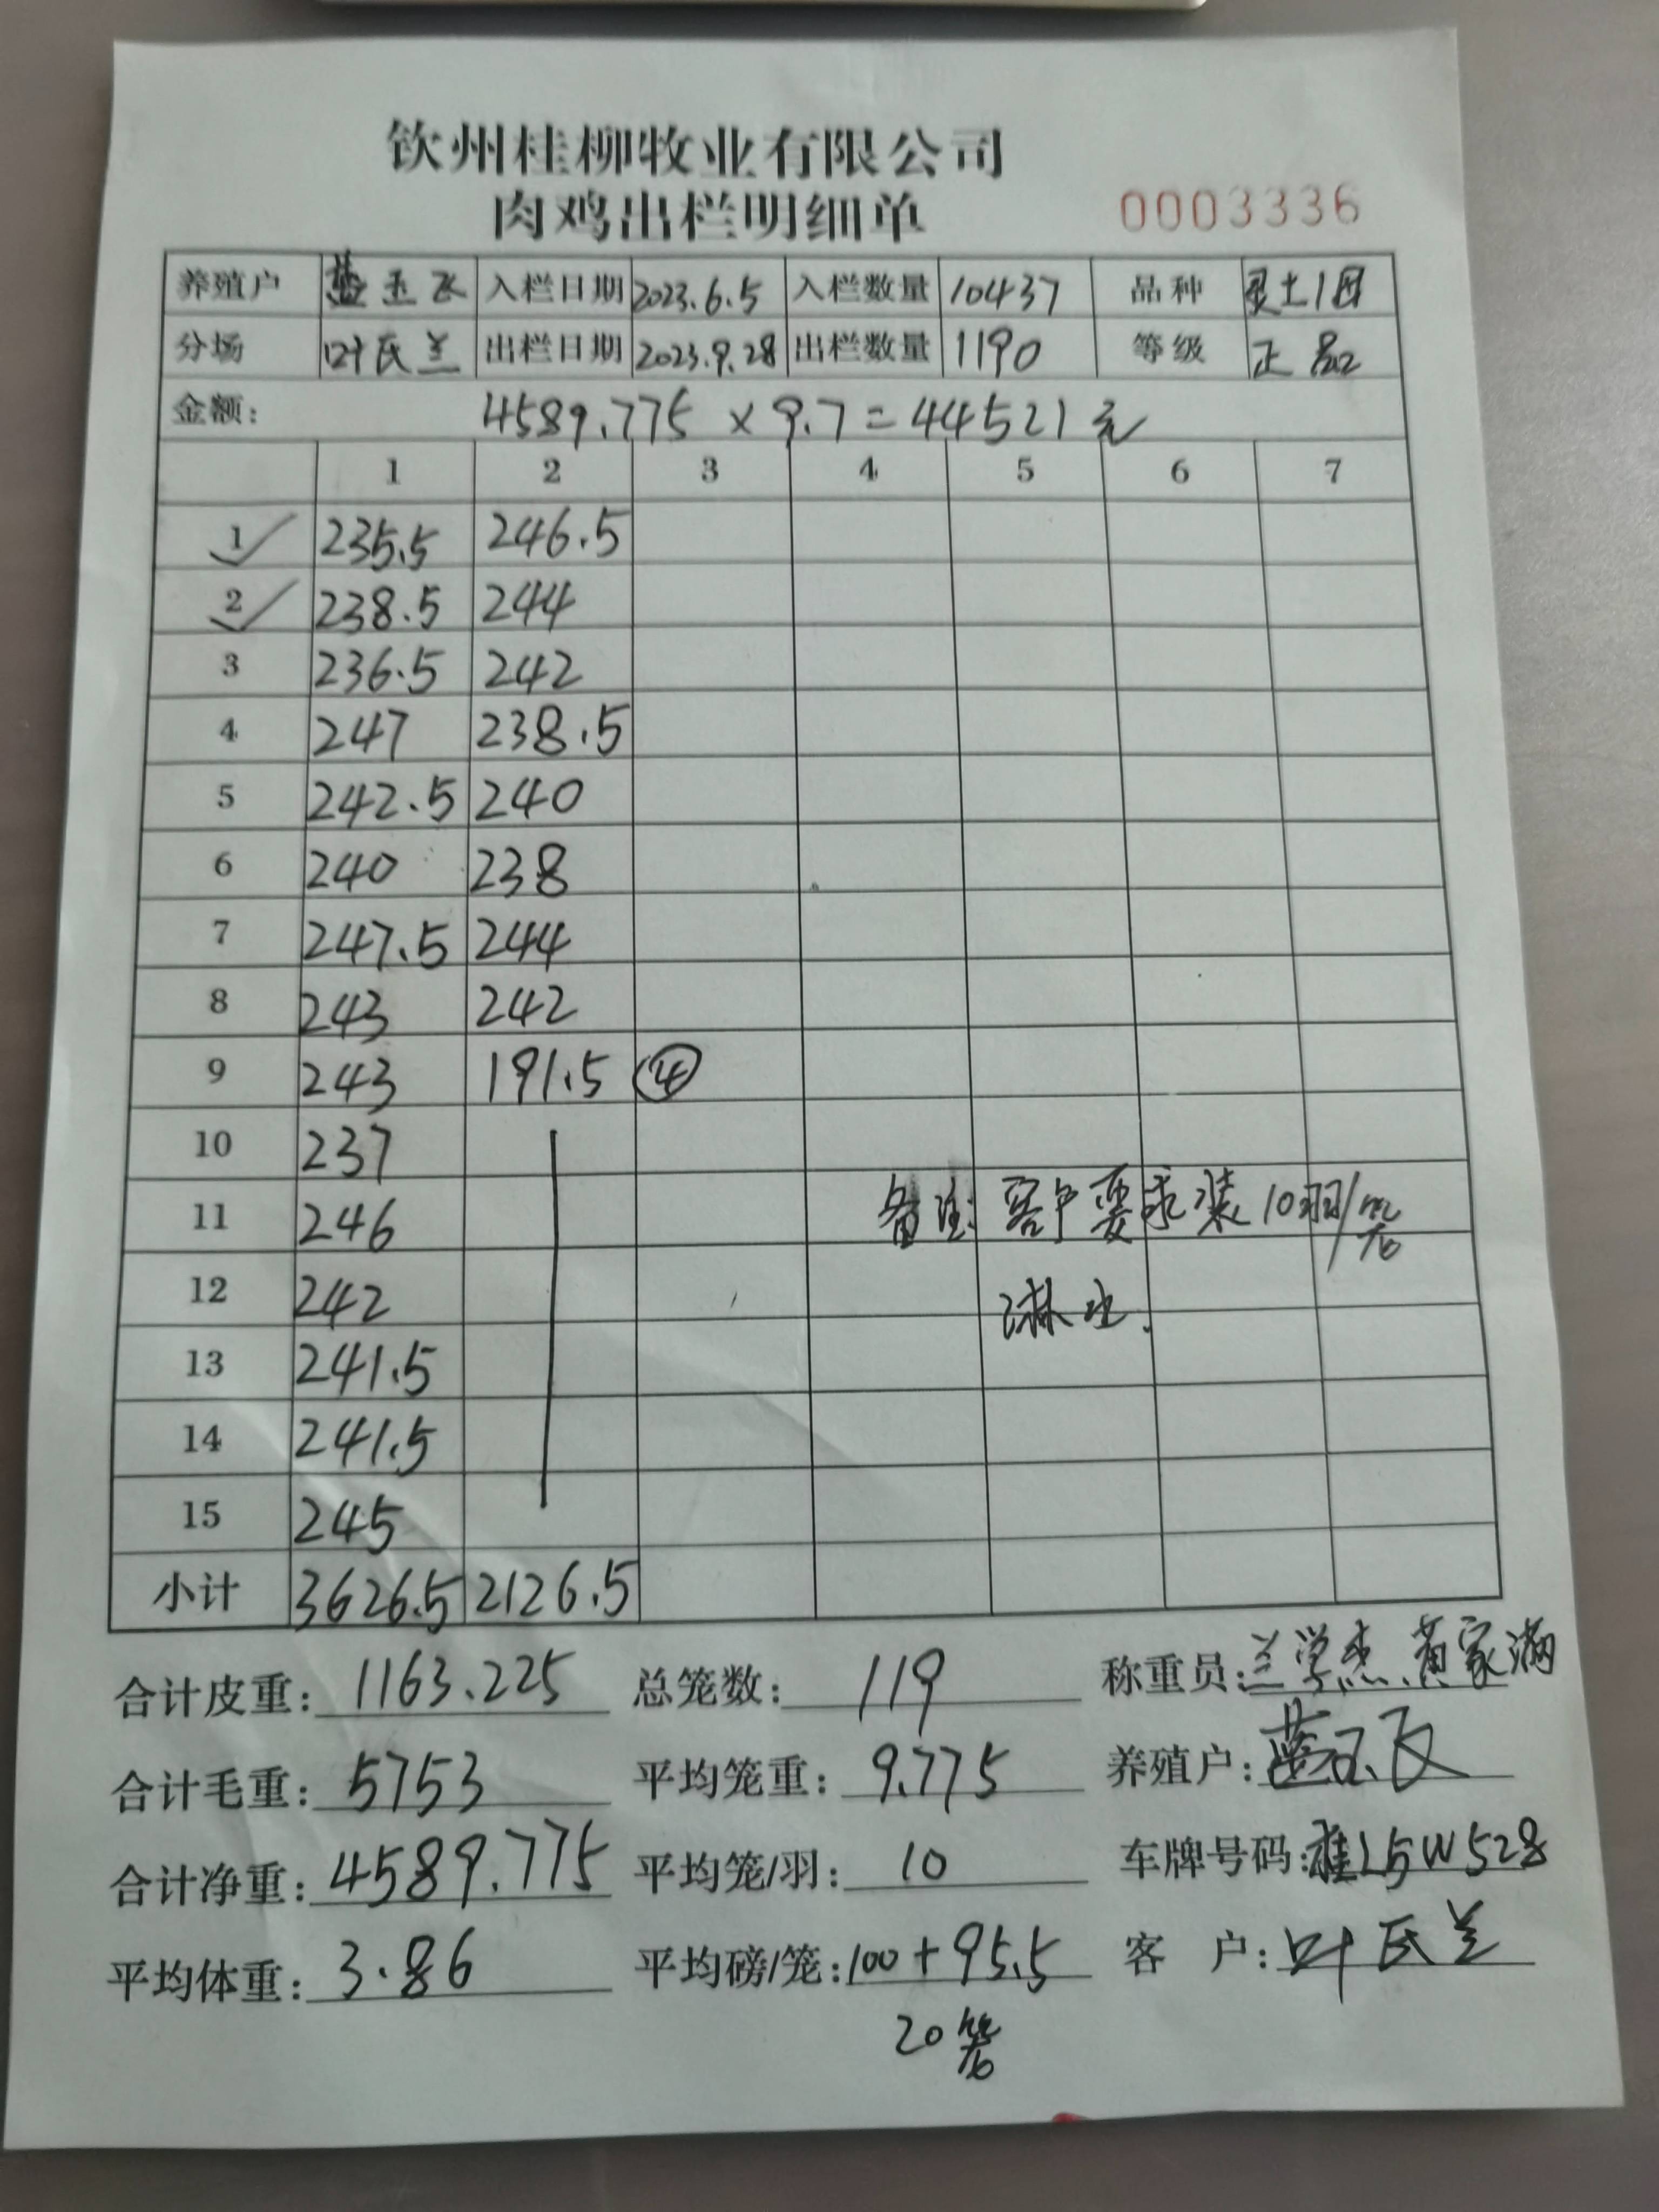 钦州桂柳牧业有限公司
肉鸡出栏明细单 0003336
养殖户 蓝玉飞 入栏日期 2023.6.5 入栏数量 10437 品种 灵土1号
分场 叶氏兰 出栏日期 2023.9.28 出栏数量 1190 等级 正品
金额: 4589.775 × 9.7 = 44521 元
1 2 3 4 5 6 7
1 235.5 246.5
2 238.5 244
3 236.5 242
4 247 238.5
5 242.5 240
6 240 238
7 247.5 244
8 243 242
9 243 191.5 ④
10 237
11 246 备注: 客户要求装10羽/笼
12 242 淋水.
13 241.5
14 241.5
15 245
小计 3626.5 2126.5
合计皮重: 1163.225 总笼数: 119 称重员: 兰学杰、黄家满
合计毛重: 5753 平均笼重: 9.775 养殖户: 蓝玉飞
合计净重: 4589.775 平均笼/羽: 10 车牌号码: 桂L5W528
平均体重: 3.86 平均磅/笼: 100+95.5 客 户: 叶氏兰
20笼